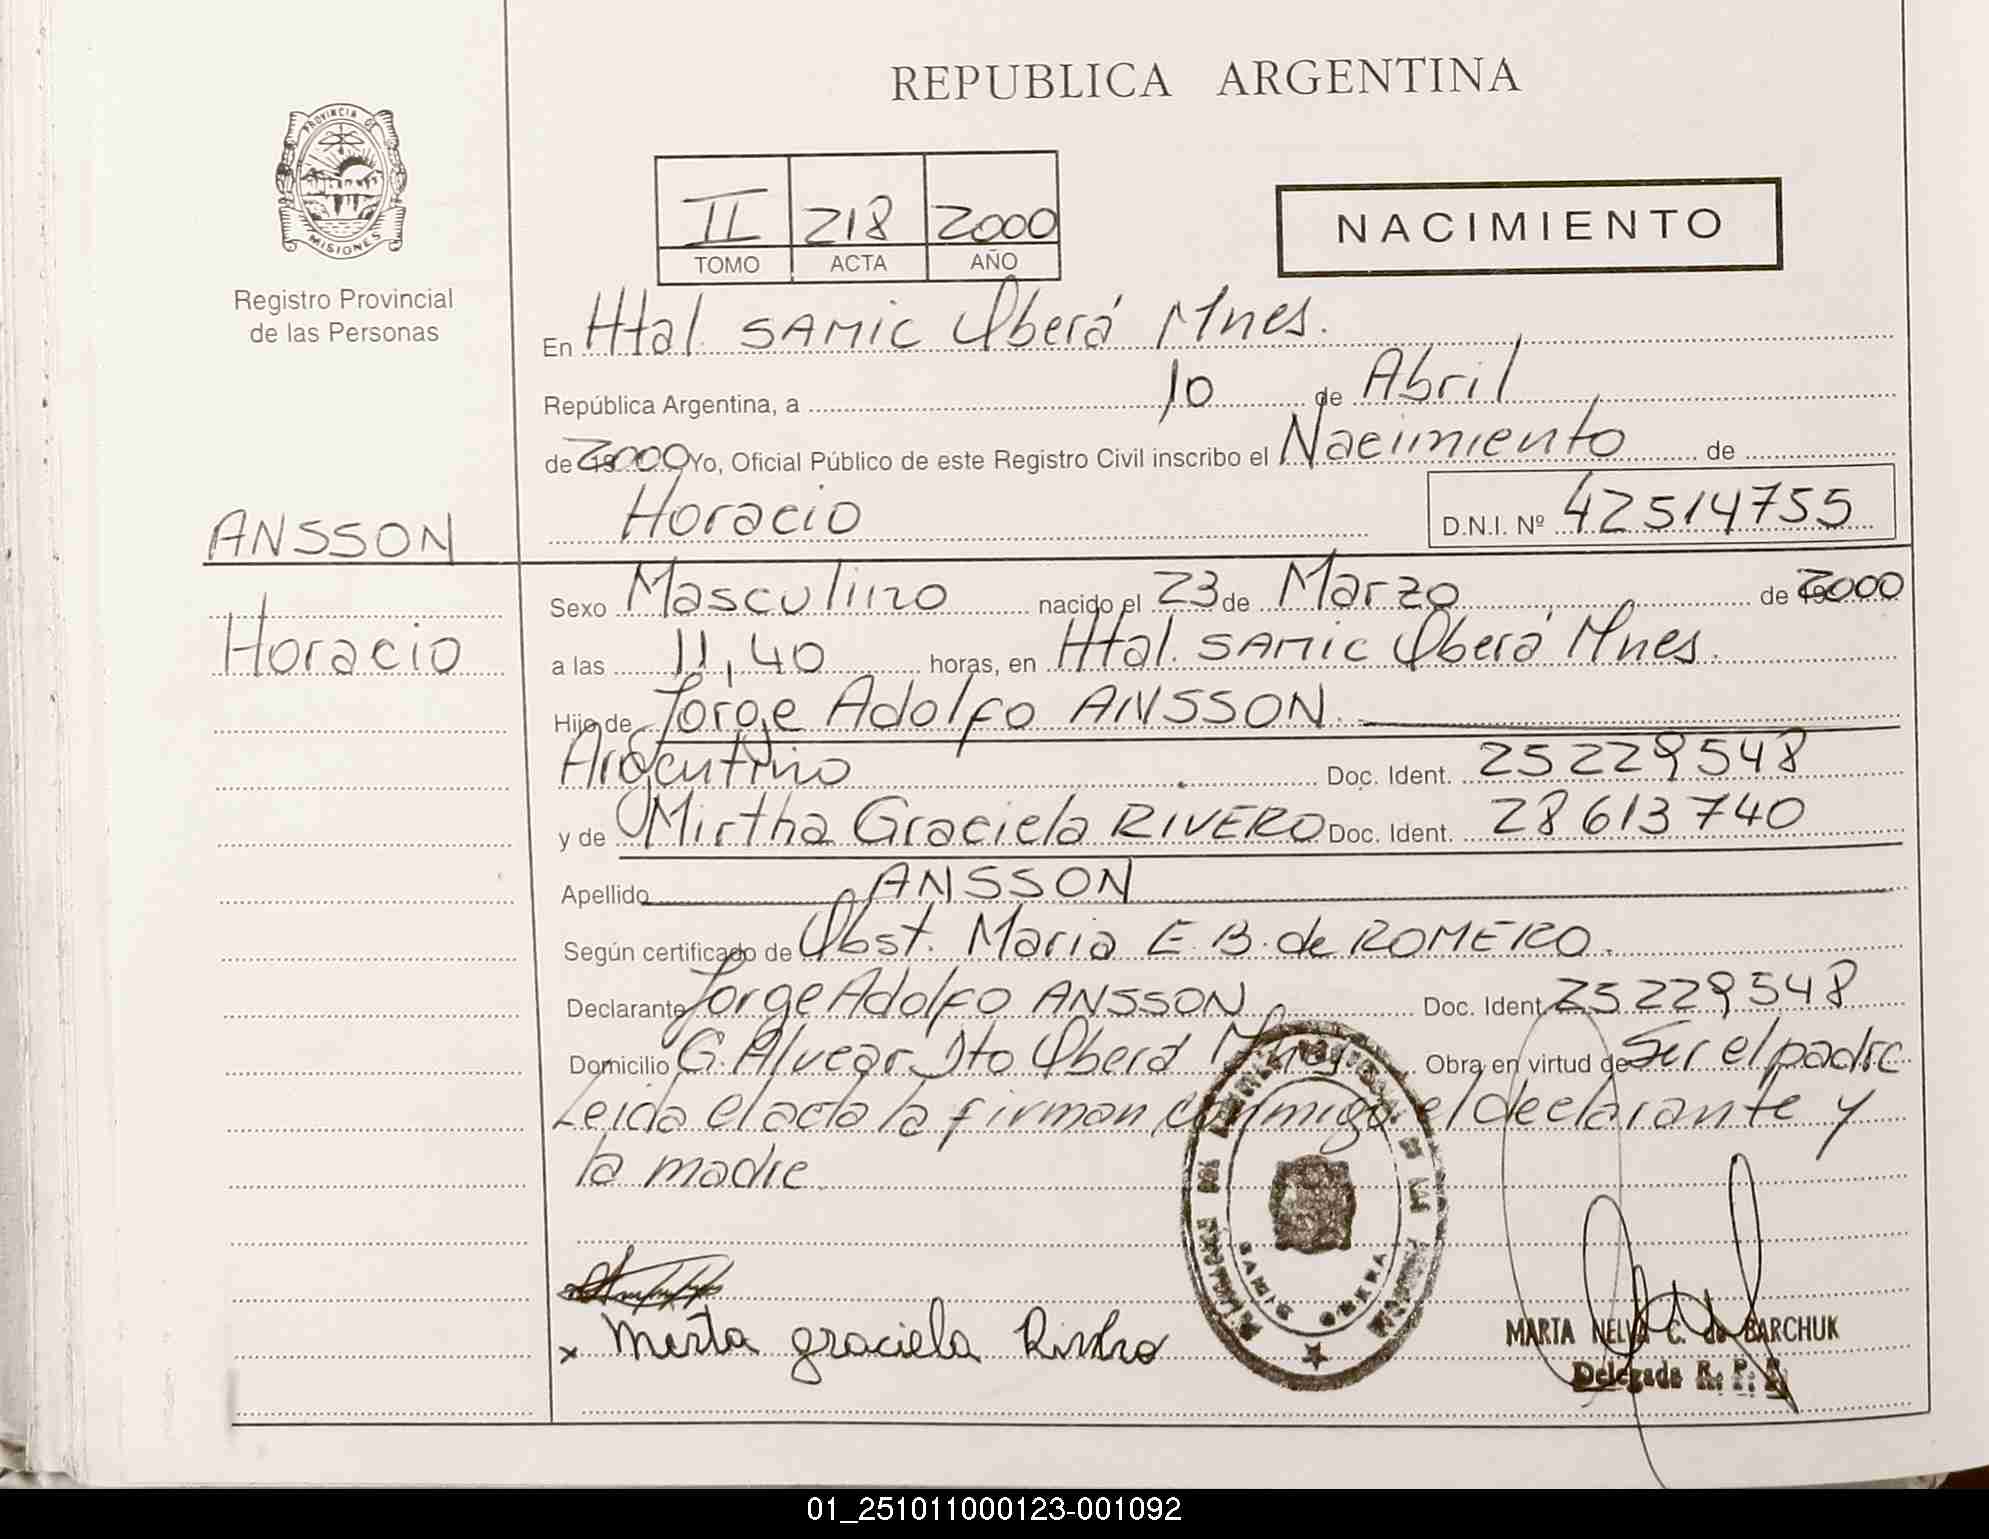 REPUBLICA ARGENTINA
PROVINCIA DE
MISIONES
Registro Provincial
de las Personas
II 218 2000
TOMO ACTA AÑO
NACIMIENTO
En Htal. SAMIC Oberá Mnes.
República Argentina, a 10 de Abril
de 2000 Yo, Oficial Público de este Registro Civil inscribo el Nacimiento de
Horacio D.N.I. Nº 42514755
ANSSON
Horacio
Sexo Masculino nacido el 23 de Marzo de 2000
a las 11,40 horas, en Htal. SAMIC Oberá Mnes.
Hijo de Jorge Adolfo ANSSON.
Argentino Doc. Ident. 25229548
y de Mirtha Graciela RIVERO Doc. Ident. 28613740
Apellido ANSSON
Según certificado de Obst. Maria E. B. de ROMERO.
Declarante Jorge Adolfo ANSSON Doc. Ident. 25229548
Domicilio G. Alvear Dto Oberá Mnes Obra en virtud de Ser el padre
Leida el acta la firman conmigo el declarante y
la madre.
SAMIC OBERA
x Mirta graciela
MARTA NELVA C. de BARCHUK
Delegada R. P. P.
01_251011000123-001092